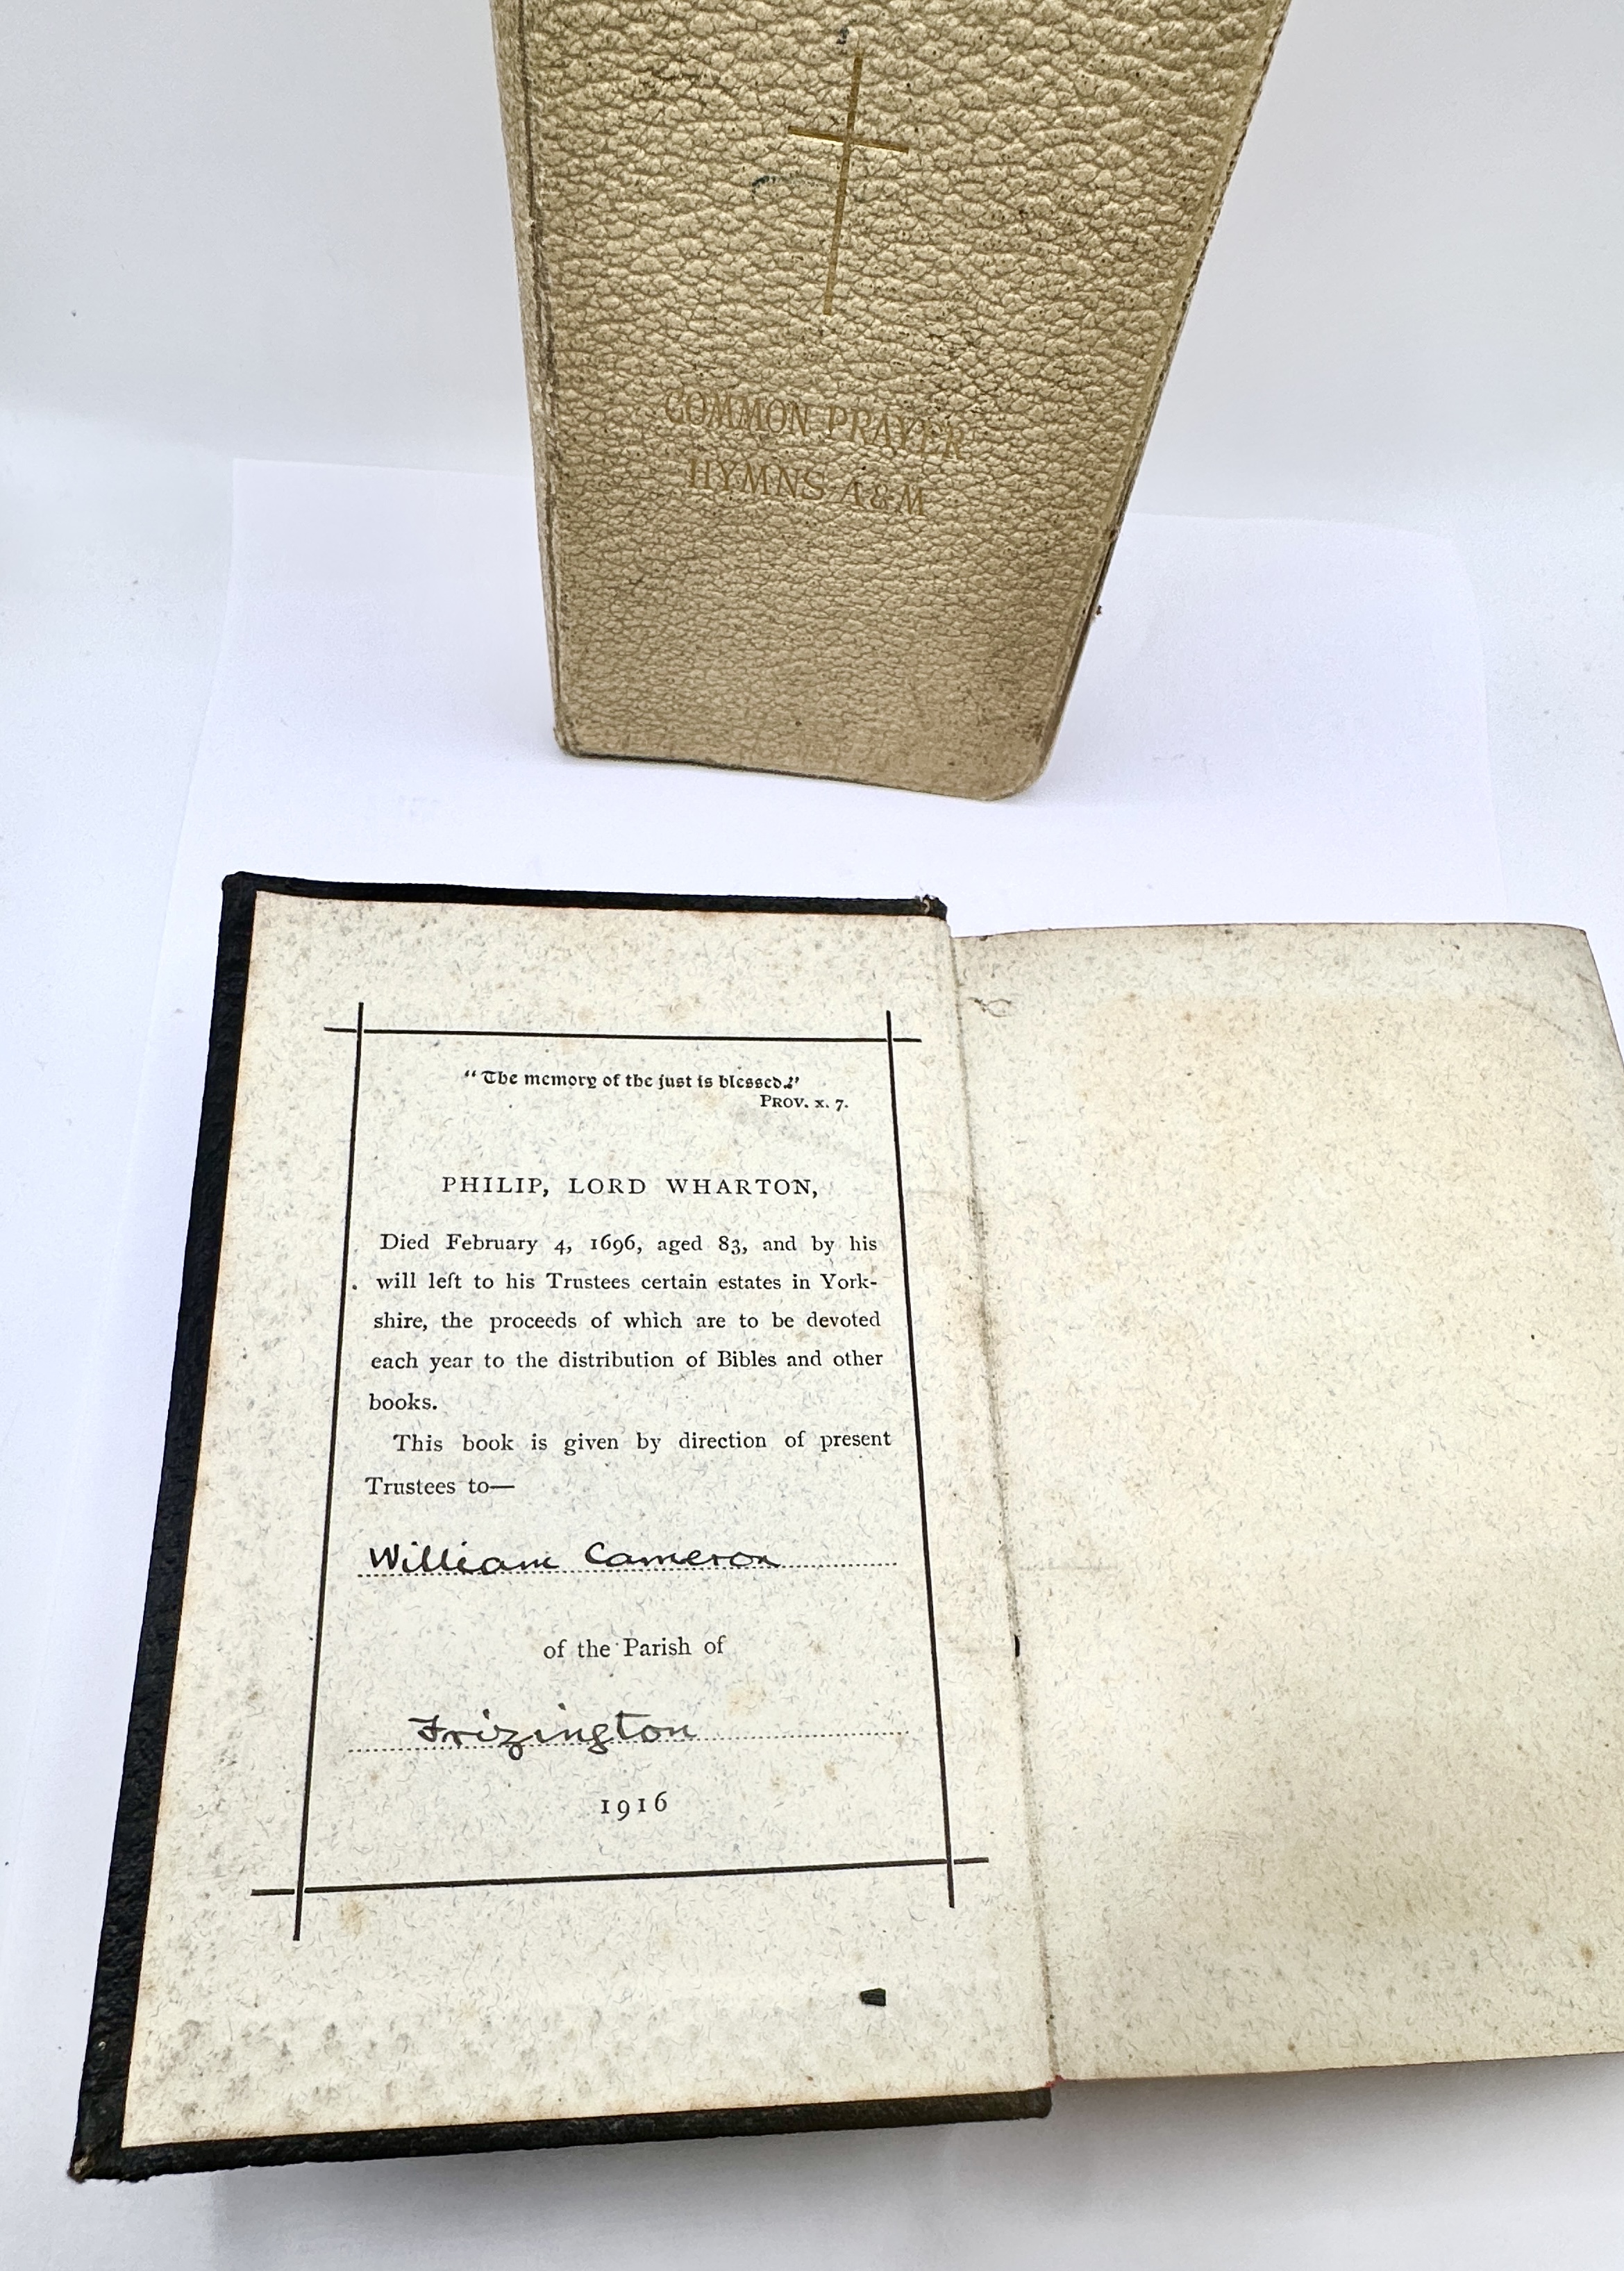 COMMON PRAYER
HYMNS A&M
"The memory of the just is blessed."
PROV. x. 7.
PHILIP, LORD WHARTON,
Died February 4, 1696, aged 83, and by his
will left to his Trustees certain estates in York-
shire, the proceeds of which are to be devoted
each year to the distribution of Bibles and other
books.
This book is given by direction of present
Trustees to—
William Cameron
of the Parish of
Frizington
1916